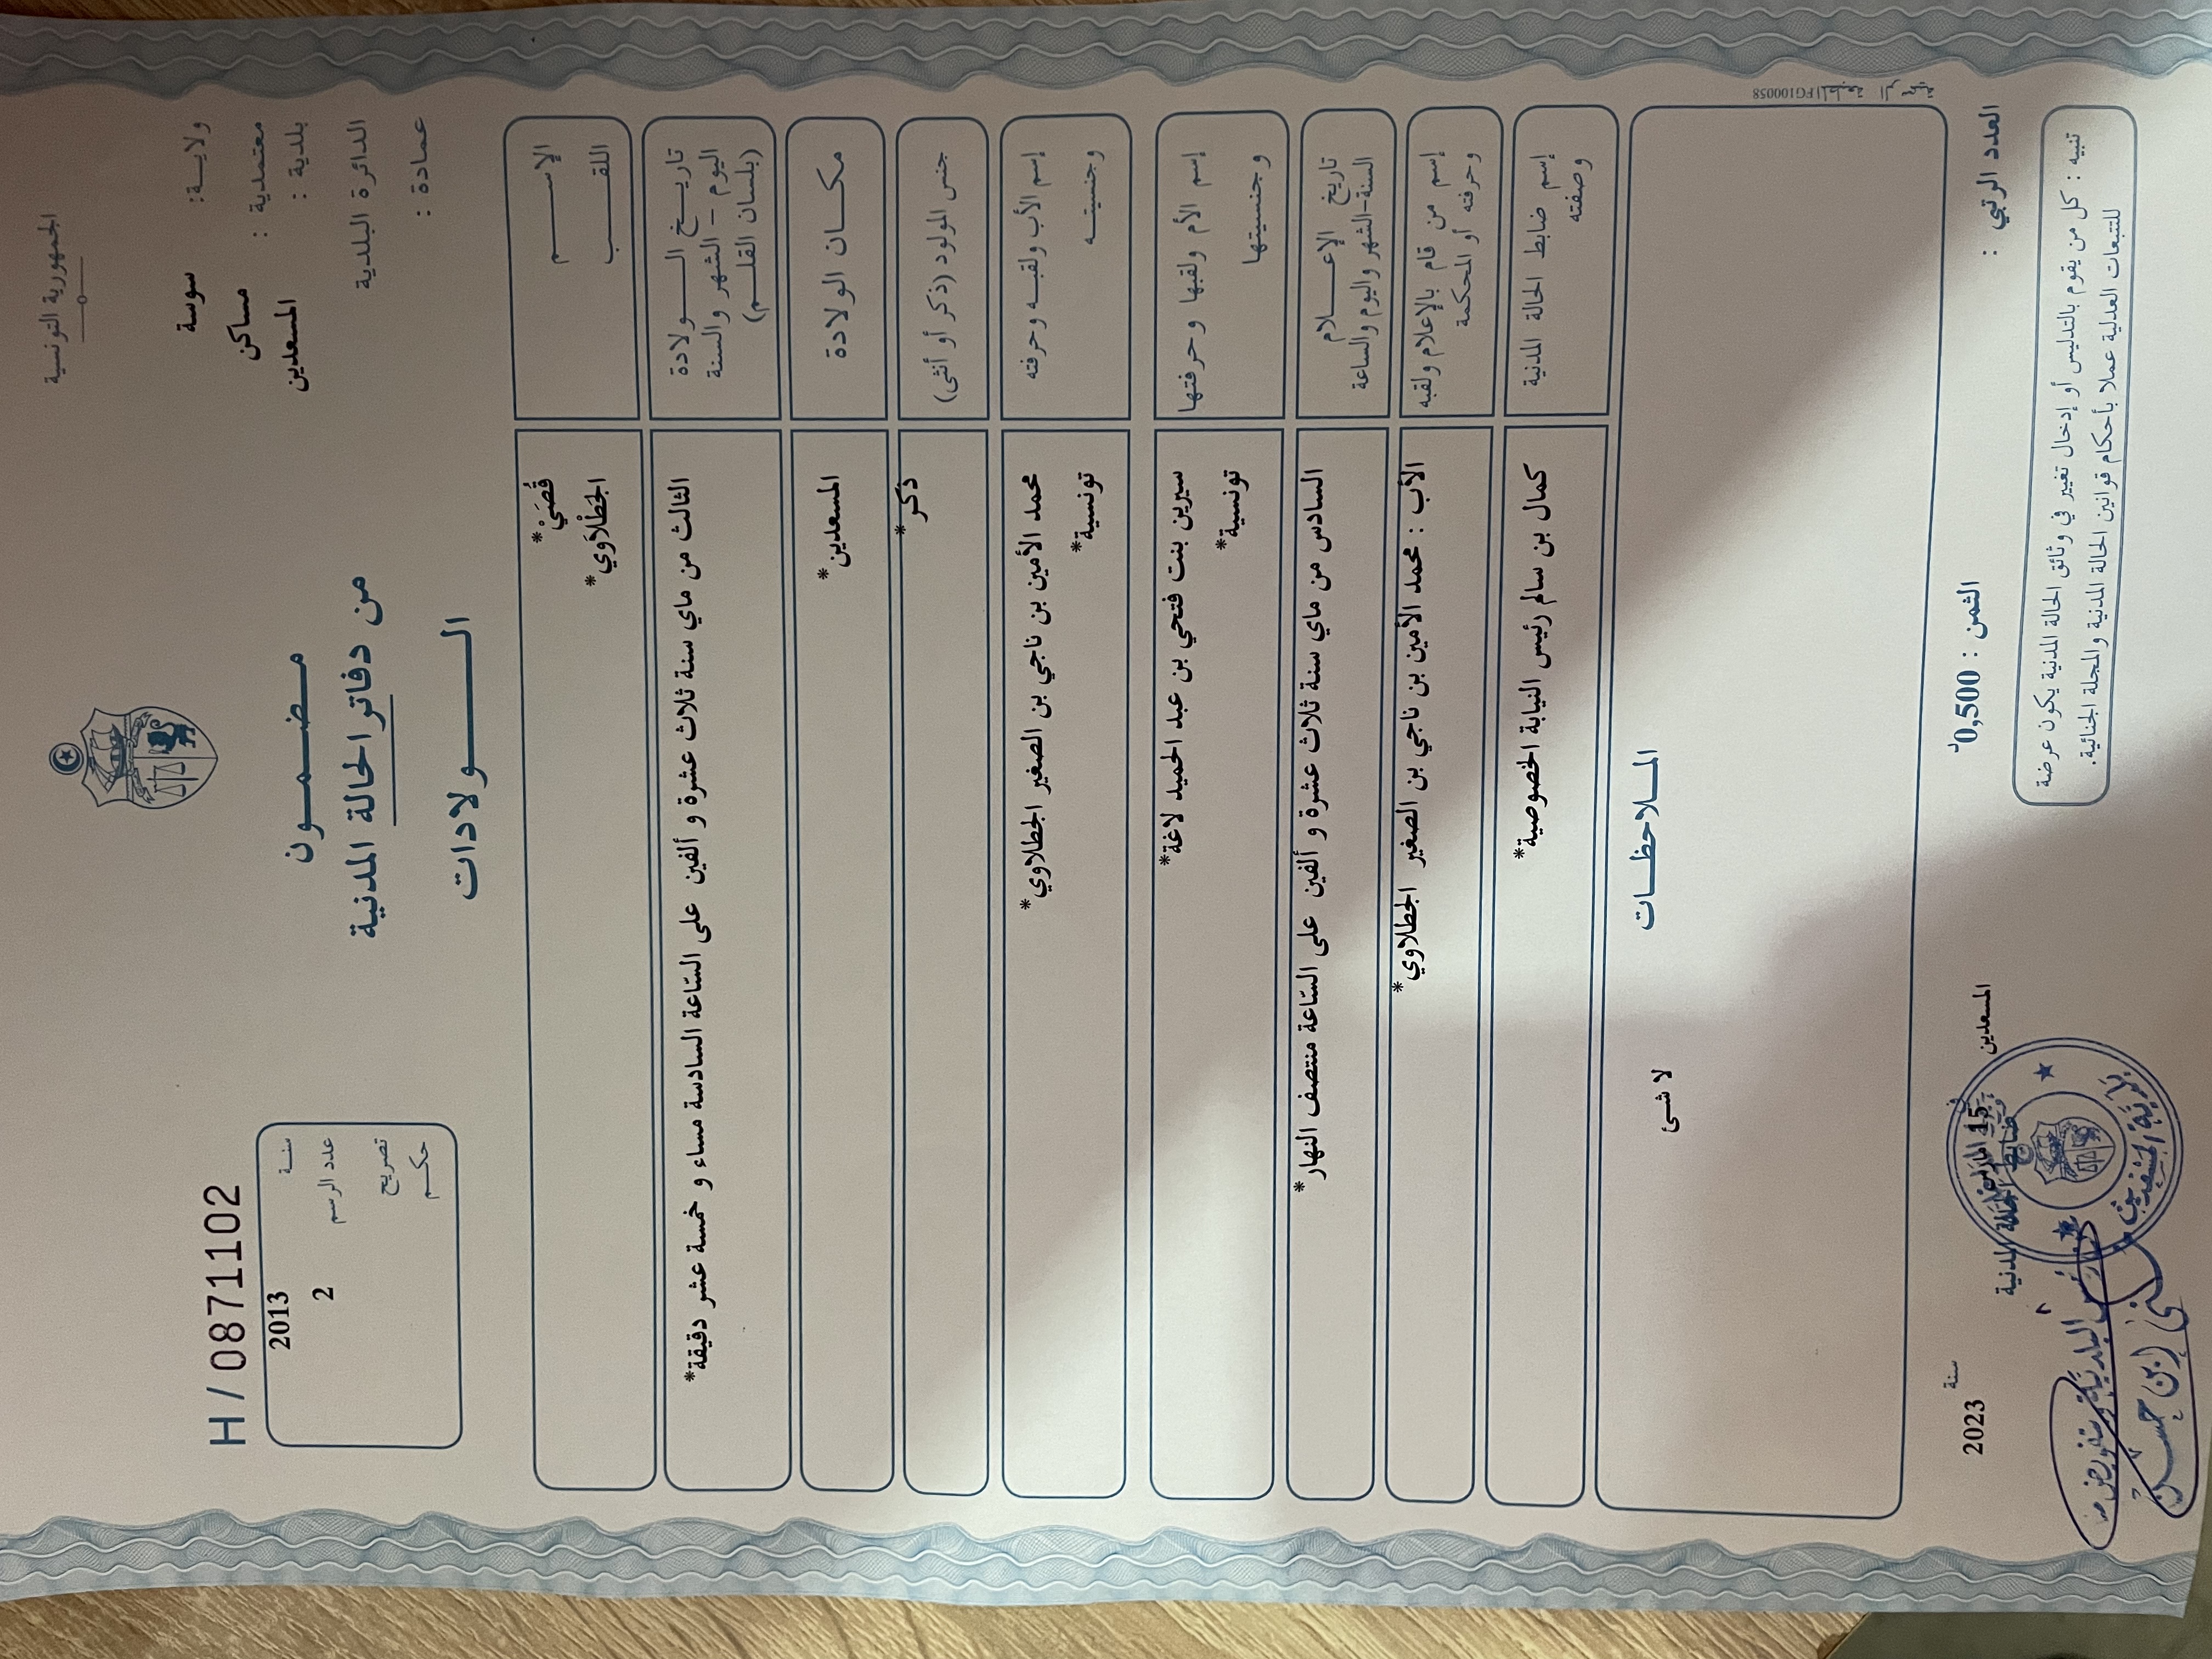 الجمهورية التونسية
ولاية: سوسة
معتمدية : مساكن
بلدية : المسعدين
الدائرة البلدية
عمادة :
مضمون
من دفاتر الحالة المدنية
الولادات
H / 0871102
سنة 2013
عدد الرسم 2
تصريح
حكم
الإسم قُصَيْ*
اللقب الجَطْلَاوِي*
تاريخ الولادة
اليوم - الشهر والسنة
(بلسان القلم)
الثالث من ماي سنة ثلاث عشرة و ألفين على السّاعة السادسة مساء و خمسة عشر دقيقة*
مكان الولادة المسعدين*
جنس المولود (ذكر أو أنثى) ذكر*
إسم الأب ولقبه وحرفته محمد الأمين بن ناجي بن الصغير الجطلاوي*
وجنسيته تونسية*
إسم الأم ولقبها وحرفتها سيرين بنت فتحي بن عبد الحميد لاغة*
وجنسيتها تونسية*
تاريخ الإعلام
السنة-الشهر واليوم والساعة
السادس من ماي سنة ثلاث عشرة و ألفين على السّاعة منتصف النهار*
إسم من قام بالإعلام ولقبه
وحرفته أو المحكمة
الأب : محمد الأمين بن ناجي بن الصغير الجطلاوي*
إسم ضابط الحالة المدنية
وصفته
كمال بن سالم رئيس النيابة الخصوصية*
الملاحظات
لا شئ
المطبعة الرسمية FG100058
العدد الرتبي :
الثمن : 0,500د
المسعدين
في 15
سنة 2023
ضابط الحالة المدنية
بلدية المسعدين
تنبيه : كل من يقوم بالتدليس أو إدخال تغيير في وثائق الحالة المدنية يكون عرضة
للتتبعات العدلية عملا بأحكام قوانين الحالة المدنية والمجلة الجنائية.